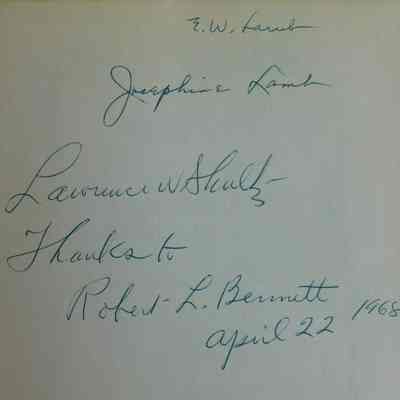 E. W. Lamb
Josephine Lamb
Lawrence W Shultz
Thanks to
Robert L. Bennett
April 22 1968